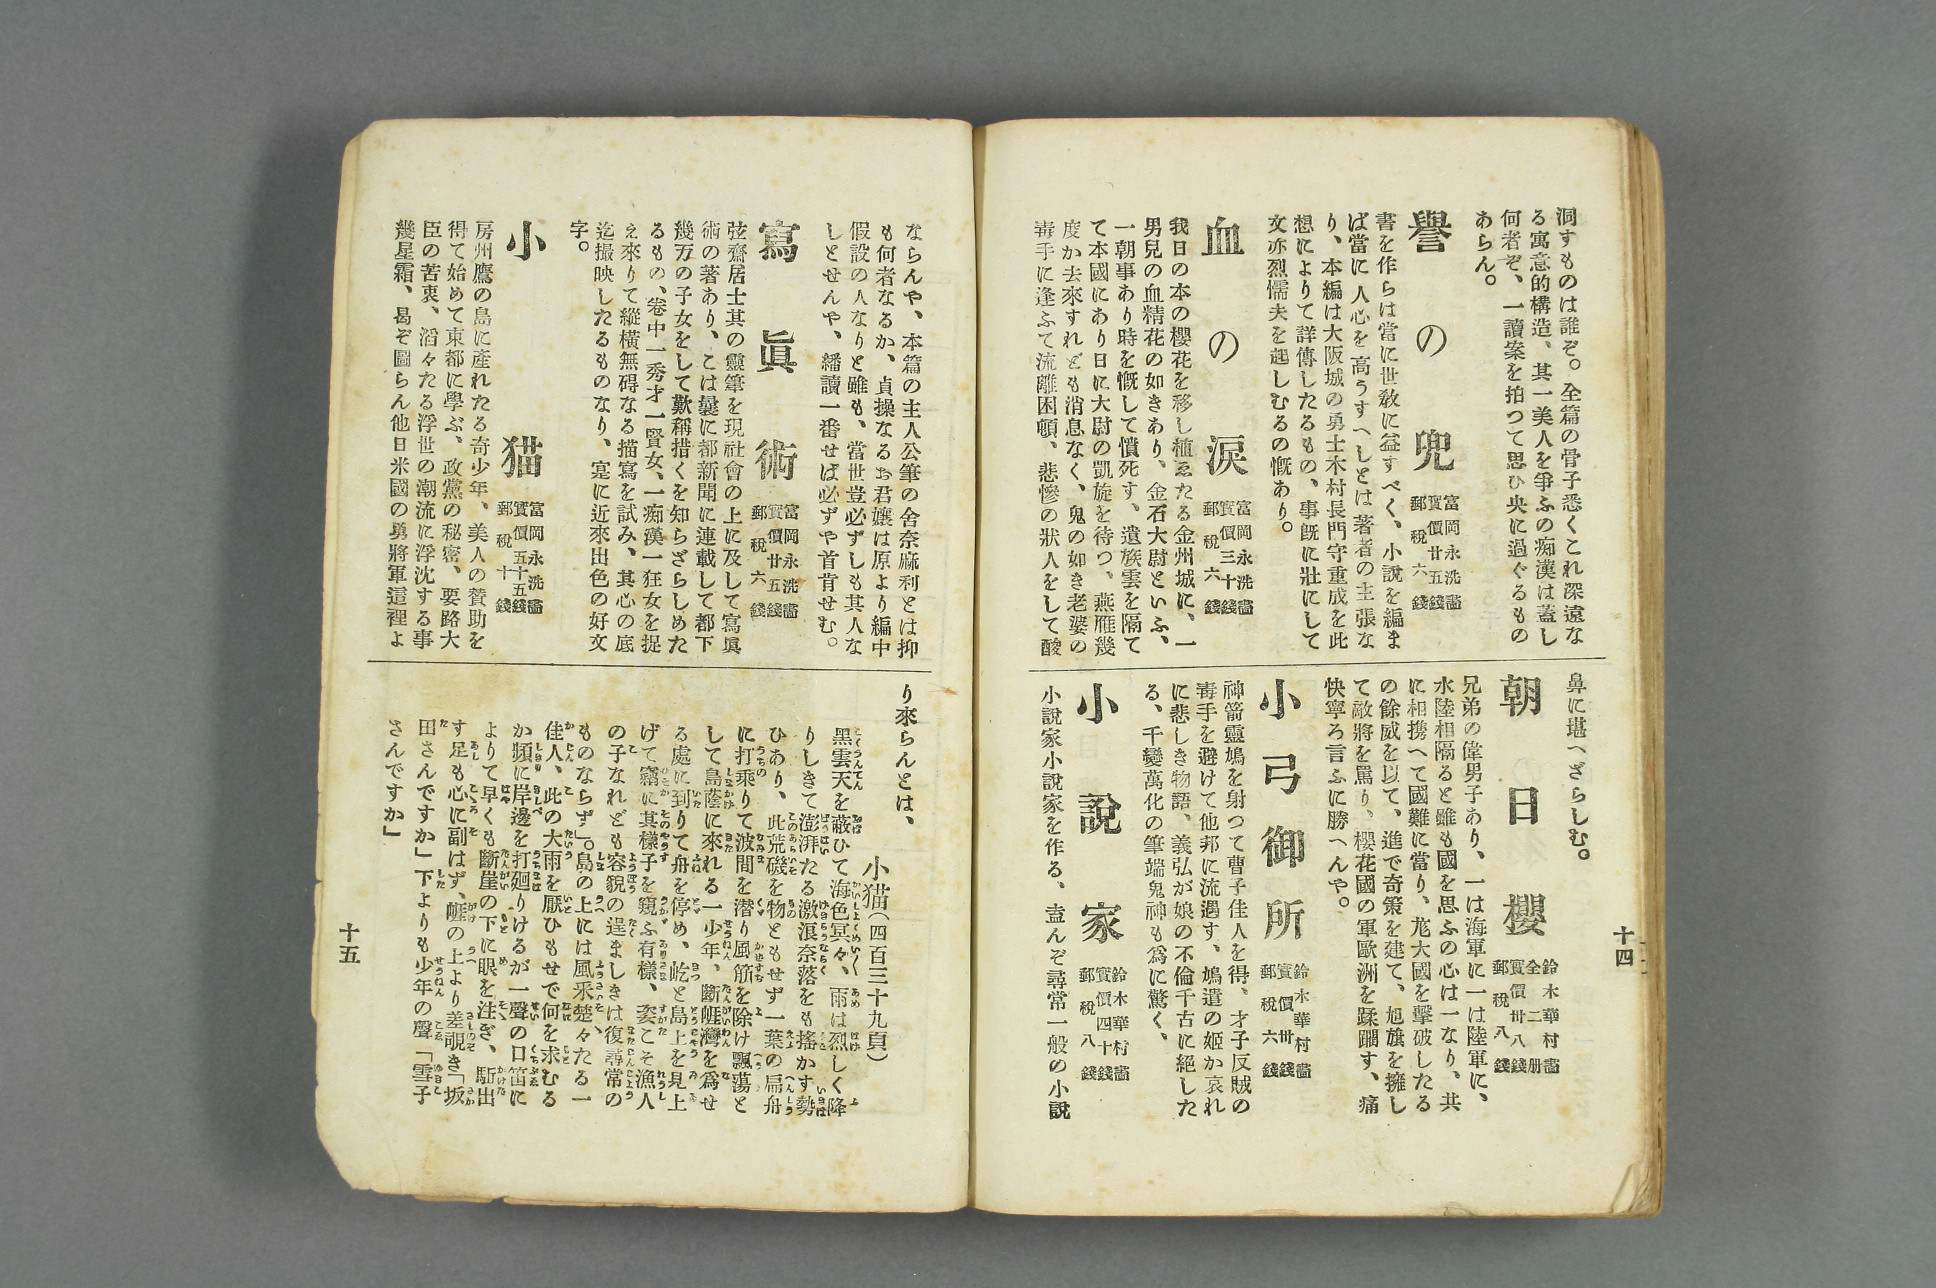 洞すものは誰ぞ。全篇の骨子悉くこれ深遠な
る寓意的構造、其一美人を爭ふの痴漢は蓋し
何者ぞ、一讀案を拍つて思ひ央に過ぐるもの
あらん。
譽の兜
富岡永洗畵
實價廿五錢
郵税六錢
書を作らは當に世敎に益すべく、小說を編ま
ば當に人心を高うすへしとは著者の主張な
り、本編は大阪城の勇士木村長門守重成を此
想によりて詳傳したるもの、事旣に壯にして
文亦烈懦夫を起しむるの慨あり。
血の涙
富岡永洗畵
實價三十錢
郵税六錢
我日の本の櫻花を移し植ゑたる金州城に、一
男兒の血精花の如きあり、金石大尉といふ、
一朝事あり時を慨して憤死す、遺族雲を隔て
て本國にあり日に大尉の凱旋を待つ、燕雁幾
度か去來すれども消息なく、鬼の如き老婆の
毒手に逢ふて流離困頓、悲慘の狀人をして酸
鼻に堪へざらしむ。
朝日櫻
鈴木華村畵
全二册
實價卅八錢
郵税八錢
兄弟の偉男子あり、一は海軍に一は陸軍に、
水陸相隔ると雖も國を思ふの心は一なり、共
に相携へて國難に當り、尨大國を擊破したる
の餘威を以て、進で奇策を建て、旭旗を擁し
て敵將を罵り、櫻花國の軍歐洲を蹂躙す、痛
快寧ろ言ふに勝へんや。
小弓御所
鈴木華村畵
實價卅錢
郵税六錢
神箭靈鳩を射つて曹子佳人を得、才子反賊の
毒手を避けて他邦に流遇す、鳩遣の姬か哀れ
に悲しき物語、義弘が娘の不倫千古に絕した
る、千變萬化の筆端鬼神も爲に驚く、
小說家
鈴木華村畵
實價四十錢
郵税八錢
小說家小說家を作る、盍んぞ尋常一般の小說
十四
ならんや、本篇の主人公筆の舍奈麻利とは抑
も何者なるか、貞操なるお君孃は原より編中
假設の人なりと雖も、當世豈必ずしも其人な
しとせんや、繙讀一番せば必ずや首肯せむ。
寫眞術
富岡永洗畵
實價廿五錢
郵税六錢
弦齋居士其の靈筆を現社會の上に及して寫眞
術の著あり、こは曩に都新聞に連載して都下
幾万の子女をして歎稱措くを知らざらしめた
るもの、卷中一秀才一賢女、一痴漢一狂女を捉
え來りて縱橫無碍なる描寫を試み、其心の底
迄撮映したるものなり、寔に近來出色の好文
字。
小猫
富岡永洗畵
實價五十五錢
郵税十錢
房州鷹の島に產れたる奇少年、美人の贊助を
得て始めて東都に學ぶ、政黨の秘密、要路大
臣の苦衷、滔々たる浮世の潮流に浮沈する事
幾星霜、曷ぞ圖らん他日米國の勇將軍這裡よ
り來らんとは、
小猫（四百三十九頁）
黑雲天を蔽ひて海色冥々、雨は烈しく降
りしきて澎湃たる激浪奈落をも搖かす勢
ひあり、此荒磯を物ともせず一葉の扁舟
に打乘りて波間を潜り風筋を除け飄蕩と
して島蔭に來れる一少年、斷崕灣を爲せ
る處に到りて舟を停め、屹と島上を見上
げて竊に其樣子を窺ふ有樣、姿こそ漁人
の子なれども容貌の逞ましきは復尋常の
ものならず」。島の上には風采楚々たる一
佳人、此の大雨を厭ひもせで何を求むる
か頻に岸邊を打廻りけるが一聲の口笛に
よりて早くも斷崖の下に眼を注ぎ、駈出
す足も心に副はず、崕の上より差覗き「坂
田さんですか」下よりも少年の聲「雪子
さんですか」
十五